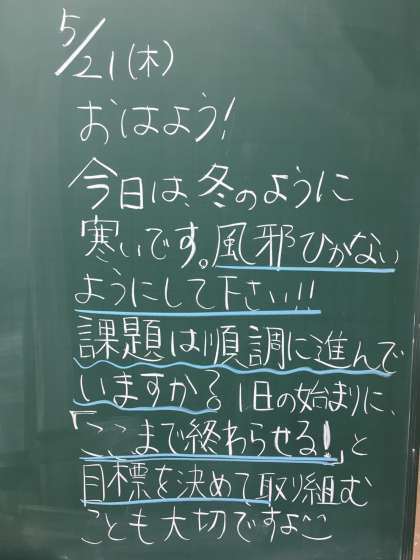 5/21(木)
おはよう!
今日は、冬のように
寒いです。風邪ひかない
ようにして下さい!!
課題は順調に進んで
いますか? 1日の始まりに、
「ここまで終わらせる!」と
目標を決めて取り組む
ことも大切ですよ